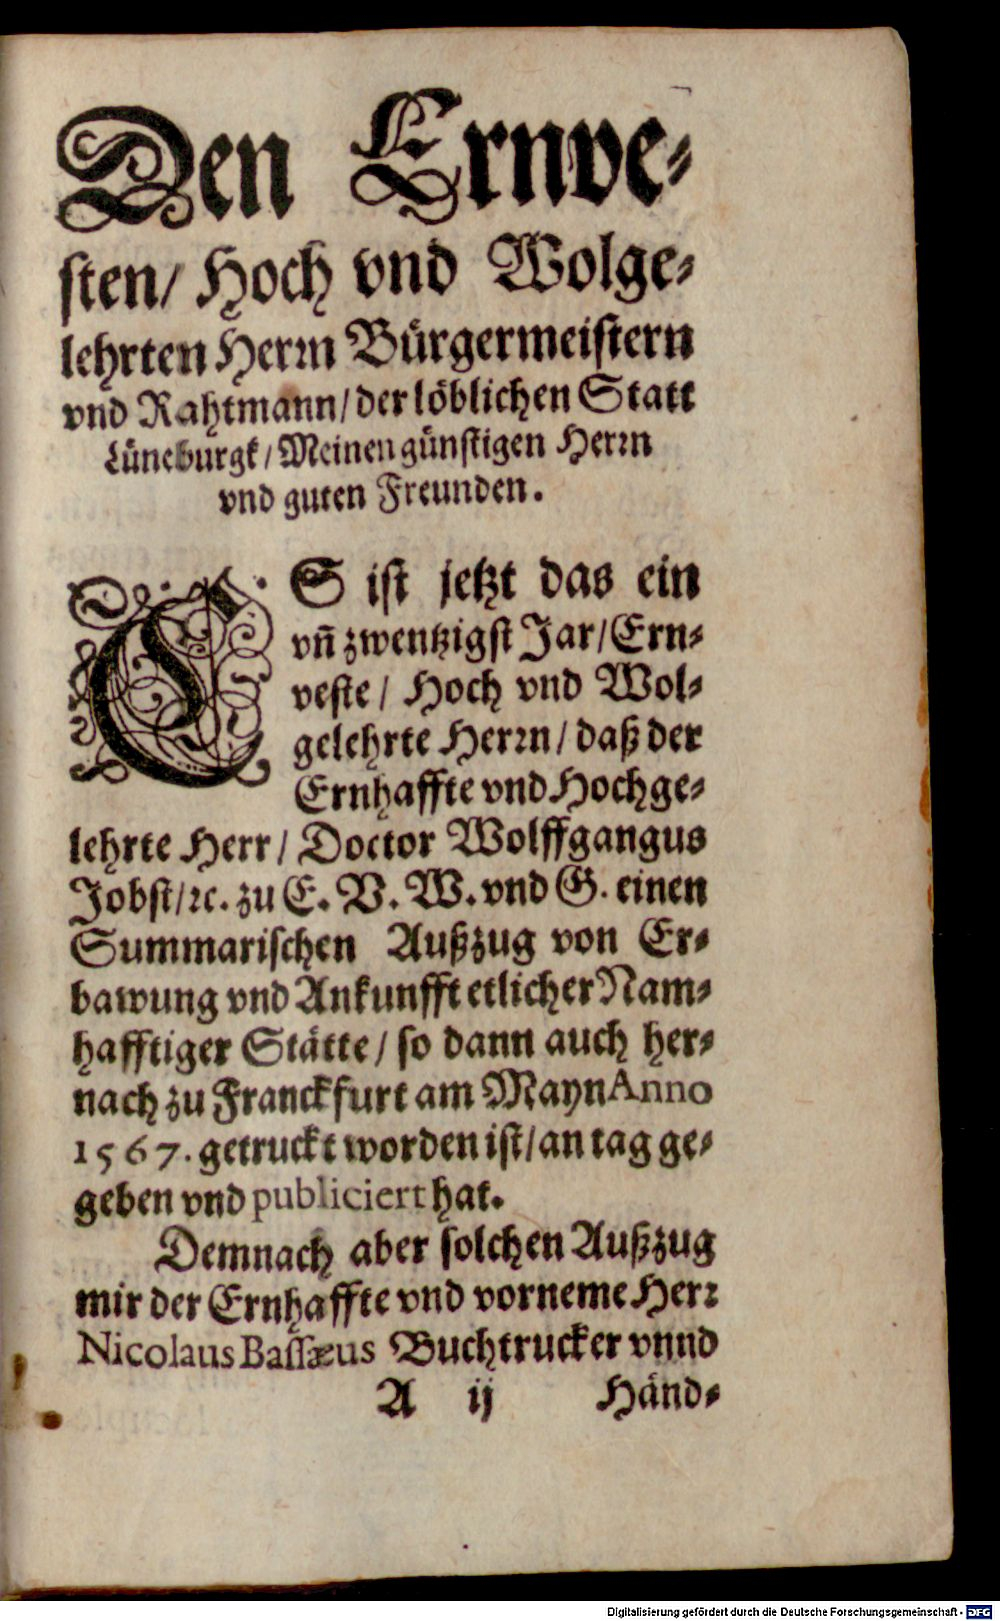 Den Ernve⸗
sten/ Hoch vnd Wolge⸗
lehrten Herꝛn Bürgermeistern
vnd Rahtmann/ der löblichen Statt
Lüneburgk/ Meinen günstigen Herꝛn
vnd guten Freunden.
ES ist jetzt das ein
vñ zwentzigst Jar/ Ern⸗
veste/ Hoch vnd Wol⸗
gelehrte Herꝛn/ daß der
Ernhaffte vnd Hochge⸗
lehrte Herr/ Doctor Wolffgangus
Jobst/ ꝛc. zu E. V. W. vnd G. einen
Summarischen Außzug von Er⸗
bawung vnd Ankunfft etlicher Nam⸗
hafftiger Stätte/ so dann auch her⸗
nach zu Franckfurt am Mayn Anno
1567. getruckt worden ist/ an tag ge⸗
geben vnd publiciert hat.
Demnach aber solchen Außzug
mir der Ernhaffte vnd vorneme Herꝛ
Nicolaus Bassæus Buchtrucker vnnd
A ij Händ⸗
Digitalisierung gefördert durch die Deutsche Forschungsgemeinschaft - DFG